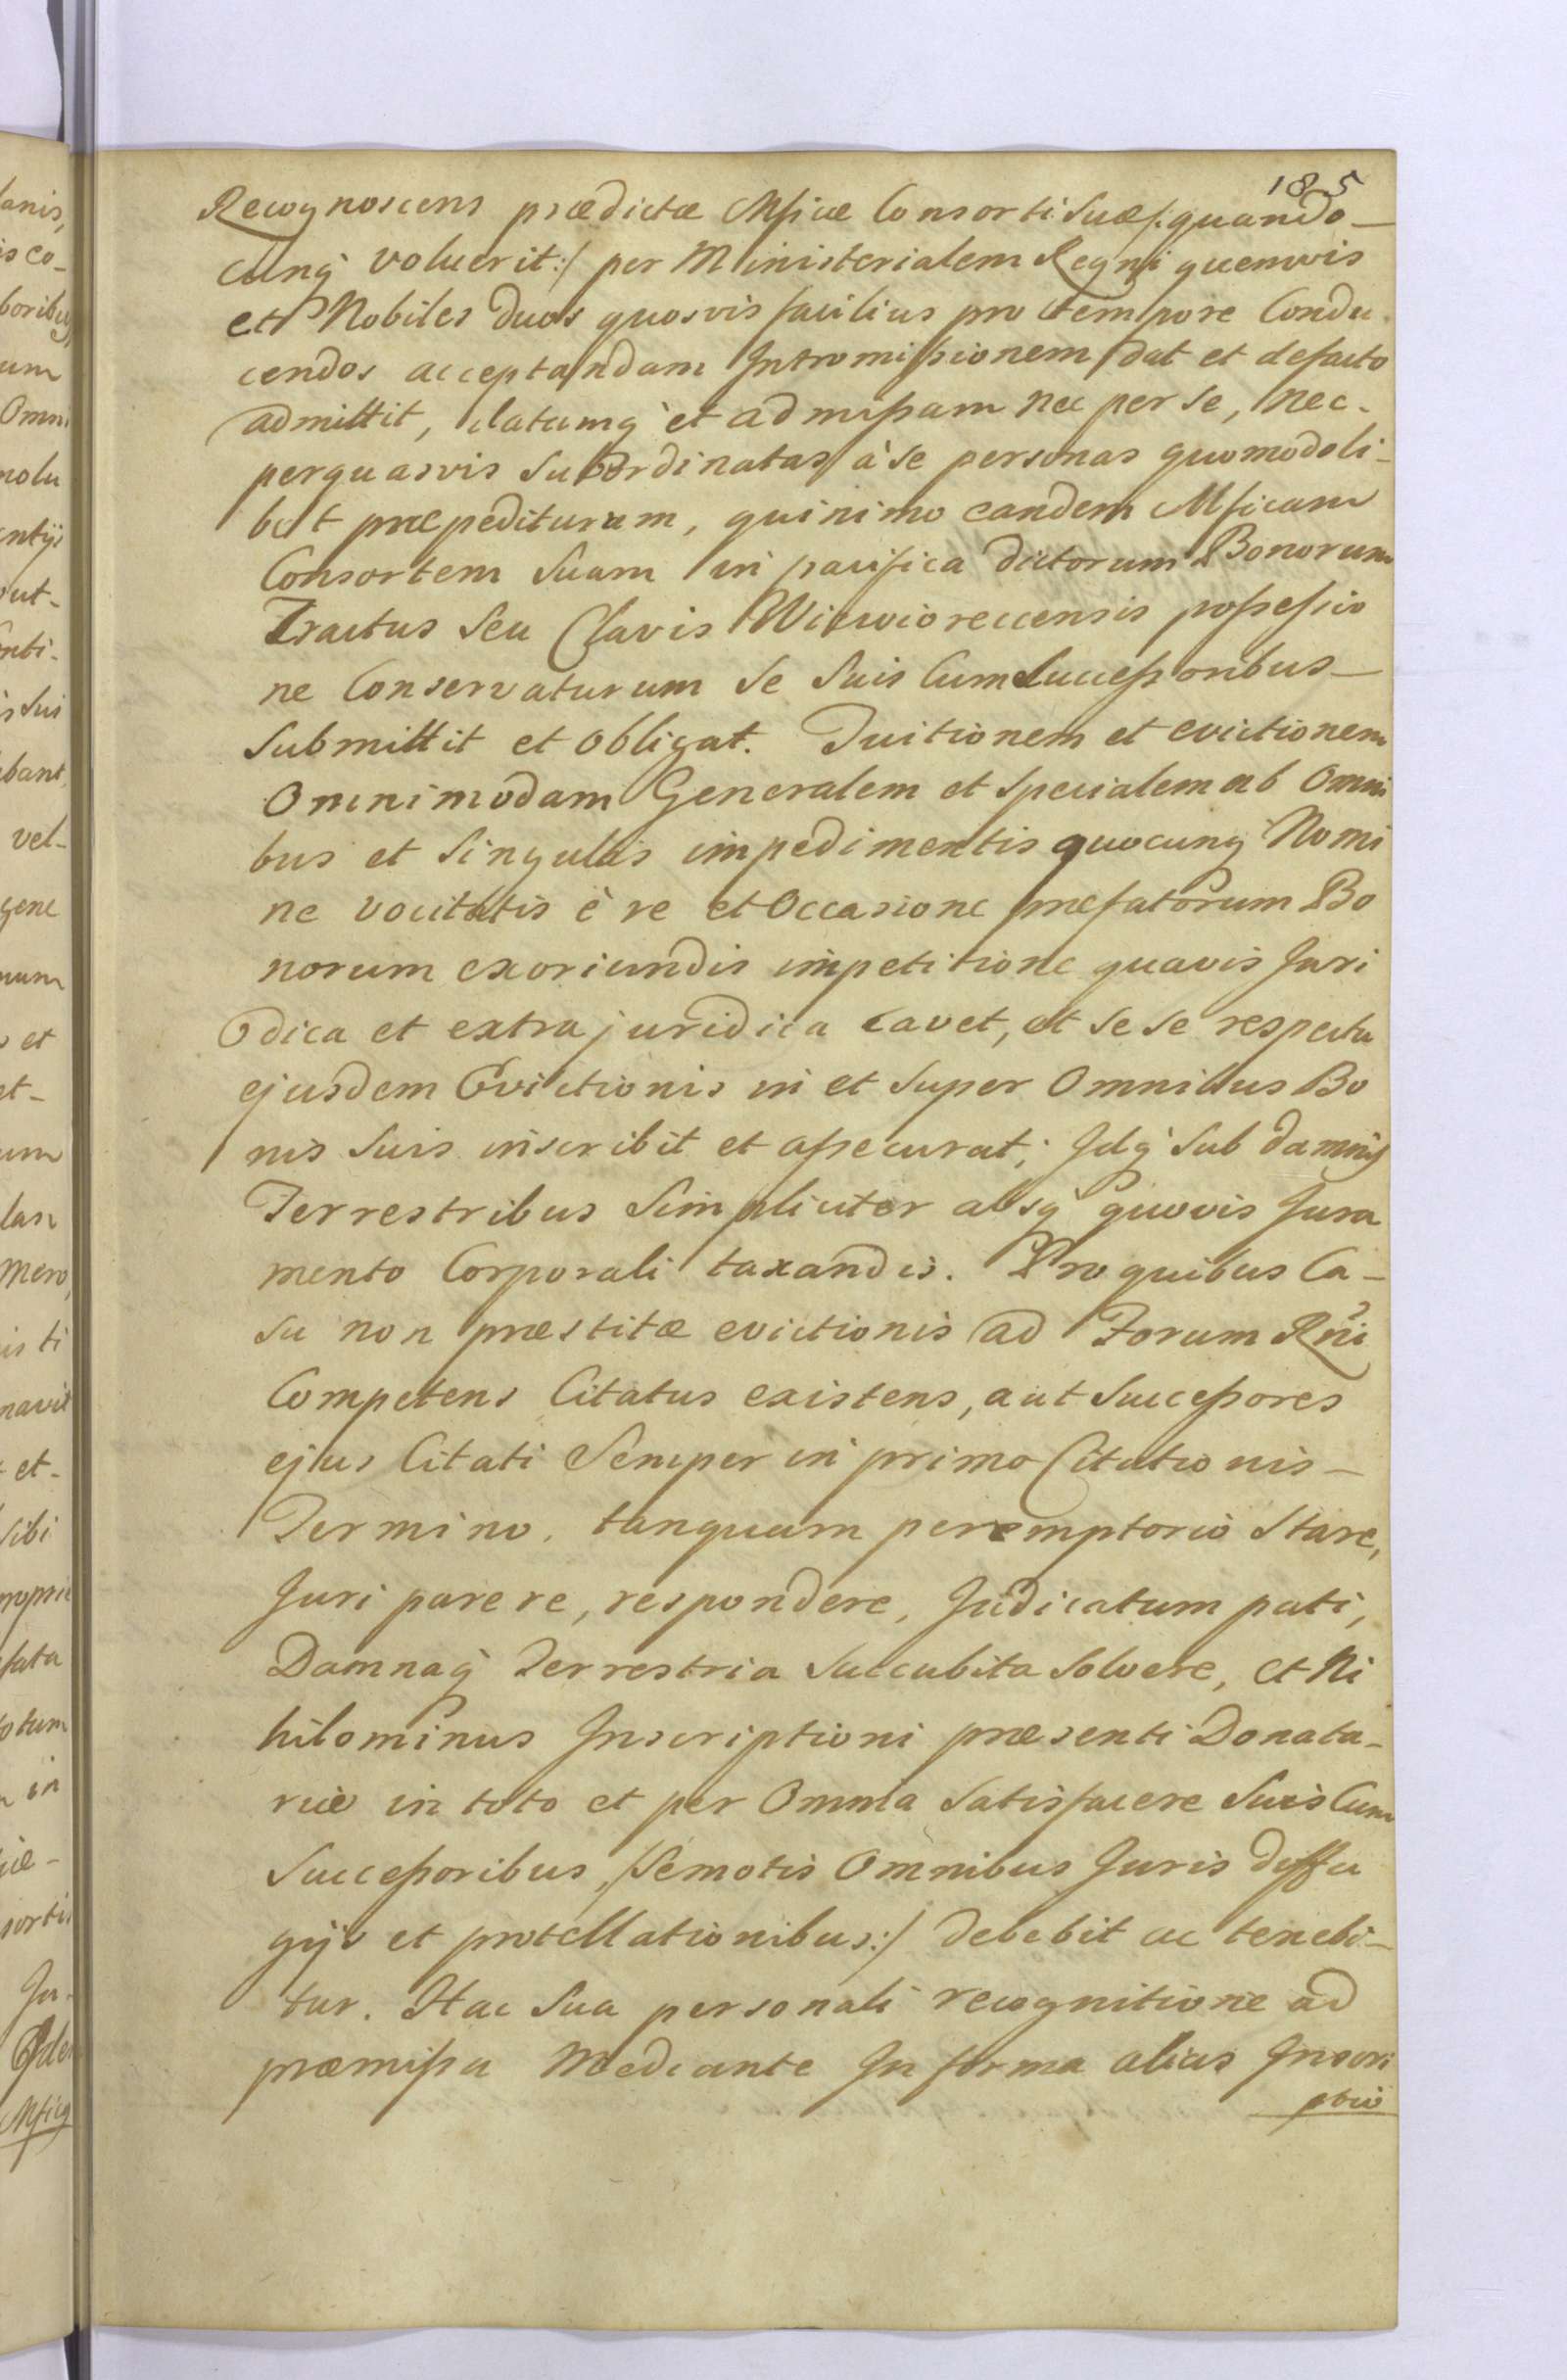 185
Recognoscens prædictæ Mficæ Consorti Suæ /:quando-
cunq̀ voluerit:/ per Ministerialem Regni quemvis
et Nobiles duos quosvis facilius pro tempore Condu-
cendos acceptandam Intromissionem dat et defacto
admittit, datamq̀ et admissam nec per se, nec-
perquasvis Subordinatas à se personas quomodoli-
bet præpediturum, quinimo eandem Mficam
Consortem Suam in pacifica dictorum Bonorum
Tractus Seu Clavis Wiewioreccensis possessio
ne Conservaturum Se Suis Cum Successoribus-
Submittit et obligat. Tuitionem et evictionem
Omnimodam Generalem et Specialem ab Omni
bus et Singulis impedimentis quocunq̀ Nomi
ne vocitatis è re et Occasione præfatorum Bo
norum exoriundis impetitione quavis Juri
dica et extrajuridica cavet, et se se respectu
ejusdem Evictionis in et Super Omnibus Bo
nis Suis inscribit et assecurat; Idq̀ Sub damnis
Terrestribus Simpliciter absq̀ quovis Jura
mento Corporali taxandis. Pro quibus Ca-
su non præstitæ evictionis ad Forum Rni
Competens Citatus existens, aut Successores
ejus Citati Semper in primo Citationis-
Termino, tanquam peremptorio Stare,
Juri parere, respondere, Judicatum pati,
Damnaq̀ Terrestria Succubita Solvere, et Ni
hilominus Inscriptioni præsenti Donata-
riæ in toto et per Omnia Satisfacere Suis Cum
Successoribus, /Semotis Omnibus Juris diffu
gijs et protellationibus:/ debebit ac tenebi-
tur. Hac Sua personali recognitione ad
præmissa Mediante In forma alias Inscri
ptio